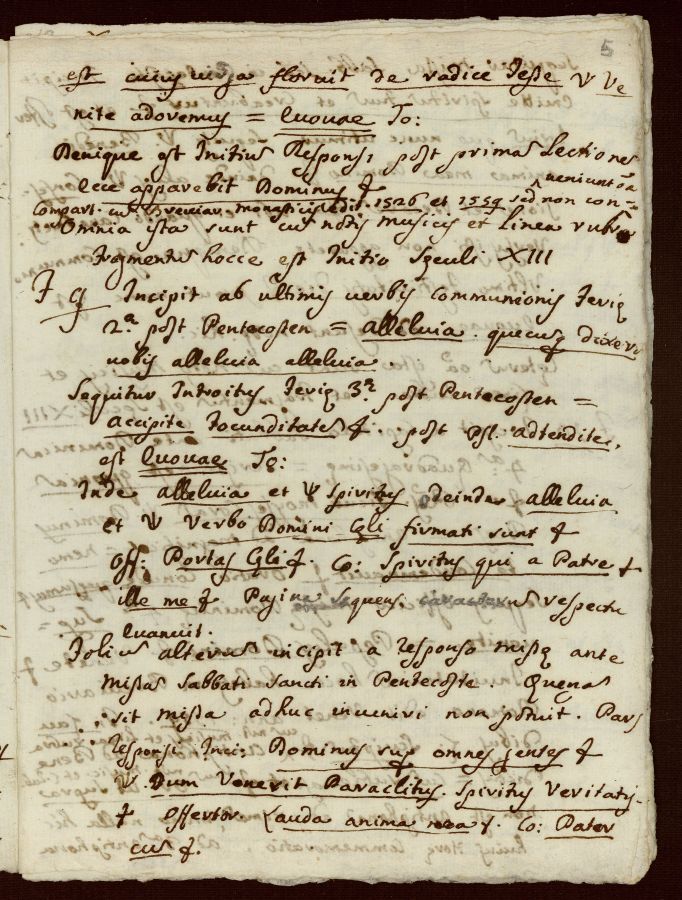 5
est cuius virga floruit de radice Jesse ℣ Ve
nite adoremus = Euouae To:
Denique est Initiũ Respons; post primas Lectiones
Ecce apparebit Dominus &
ueniunt oĩa
Compart. cũ Breviar. monasticis edit. 1526 et 1559 sed non con=
Omnia ista sunt cũ notis musicis et linea rubra
Fragmentũ hocce est Initio Sæculi XIII
F 9 Incipit ab ultimis verbis communionis Feriæ
2.ª post Pentecosten = alleluia. quecunq dixero
vobis alleluia alleluia.
Sequitur Introitus Feriæ 3.ª post Pentecosten =
accipite Jocunditatē &. post Ps. adtendite,
est Euouae Tg:
Inde alleluia et ℣ Spiritus deinde alleluia
et ℣ Verbo Domini Cęli firmati sunt &
Off: Portas Cęli &. Co: Spiritus qui a Patre &
ille me & Pagina sequens. respectu
Evanuit.
Folium alterũ incipit a Responso missæ ante
missas Sabbati Sancti in Pentecoste. Quenã
sit missa adhuc invenivi non potuit. Pars
Responsi Inci: Dominus sup omnes gentes &
℣. Dum Venerit Paraclitus. Spiritus Veritatis
& Offertor. Lauda anima mea &. Co: Pater
cũ &.